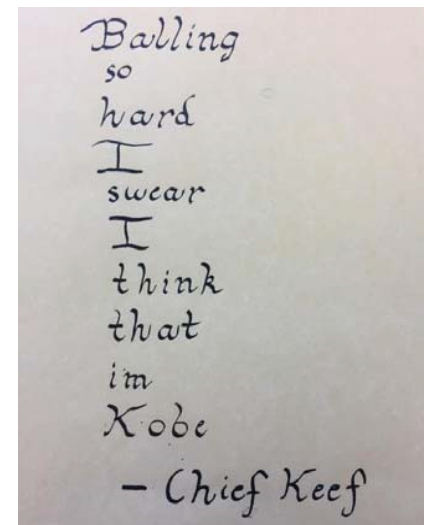 Balling
so
hard
I
swear
I
think
that
im
Kobe
- Chief Keef